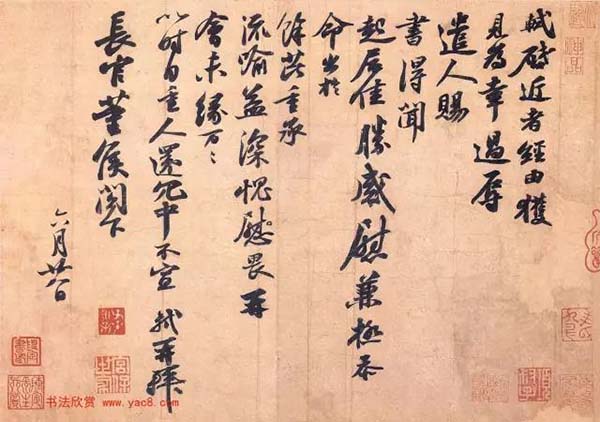 軾啓近者經由獲
見為幸過辱
遣人賜
書得聞
起居佳勝感慰兼極忝
命出於
餘芘重承
流喻益深愧慰畏再
會未緣万々
以時自重人還冗中不宣 軾再拜
長官董侯閣下
六月廿八日
书法欣赏 www.yac8.com